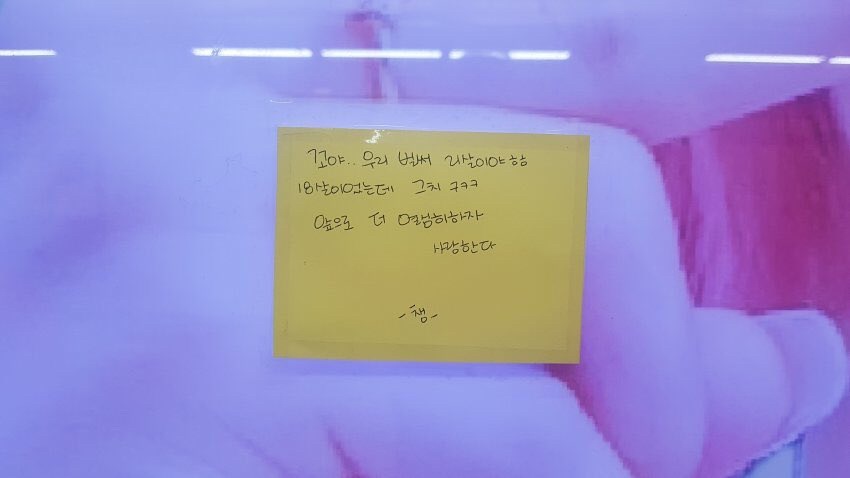 꼬야.. 우리 벌써 21살이야 함
18살이었는데 그치 ㅋㅋㅋ
앞으로 더 열심히하자
사랑한다
-챔-